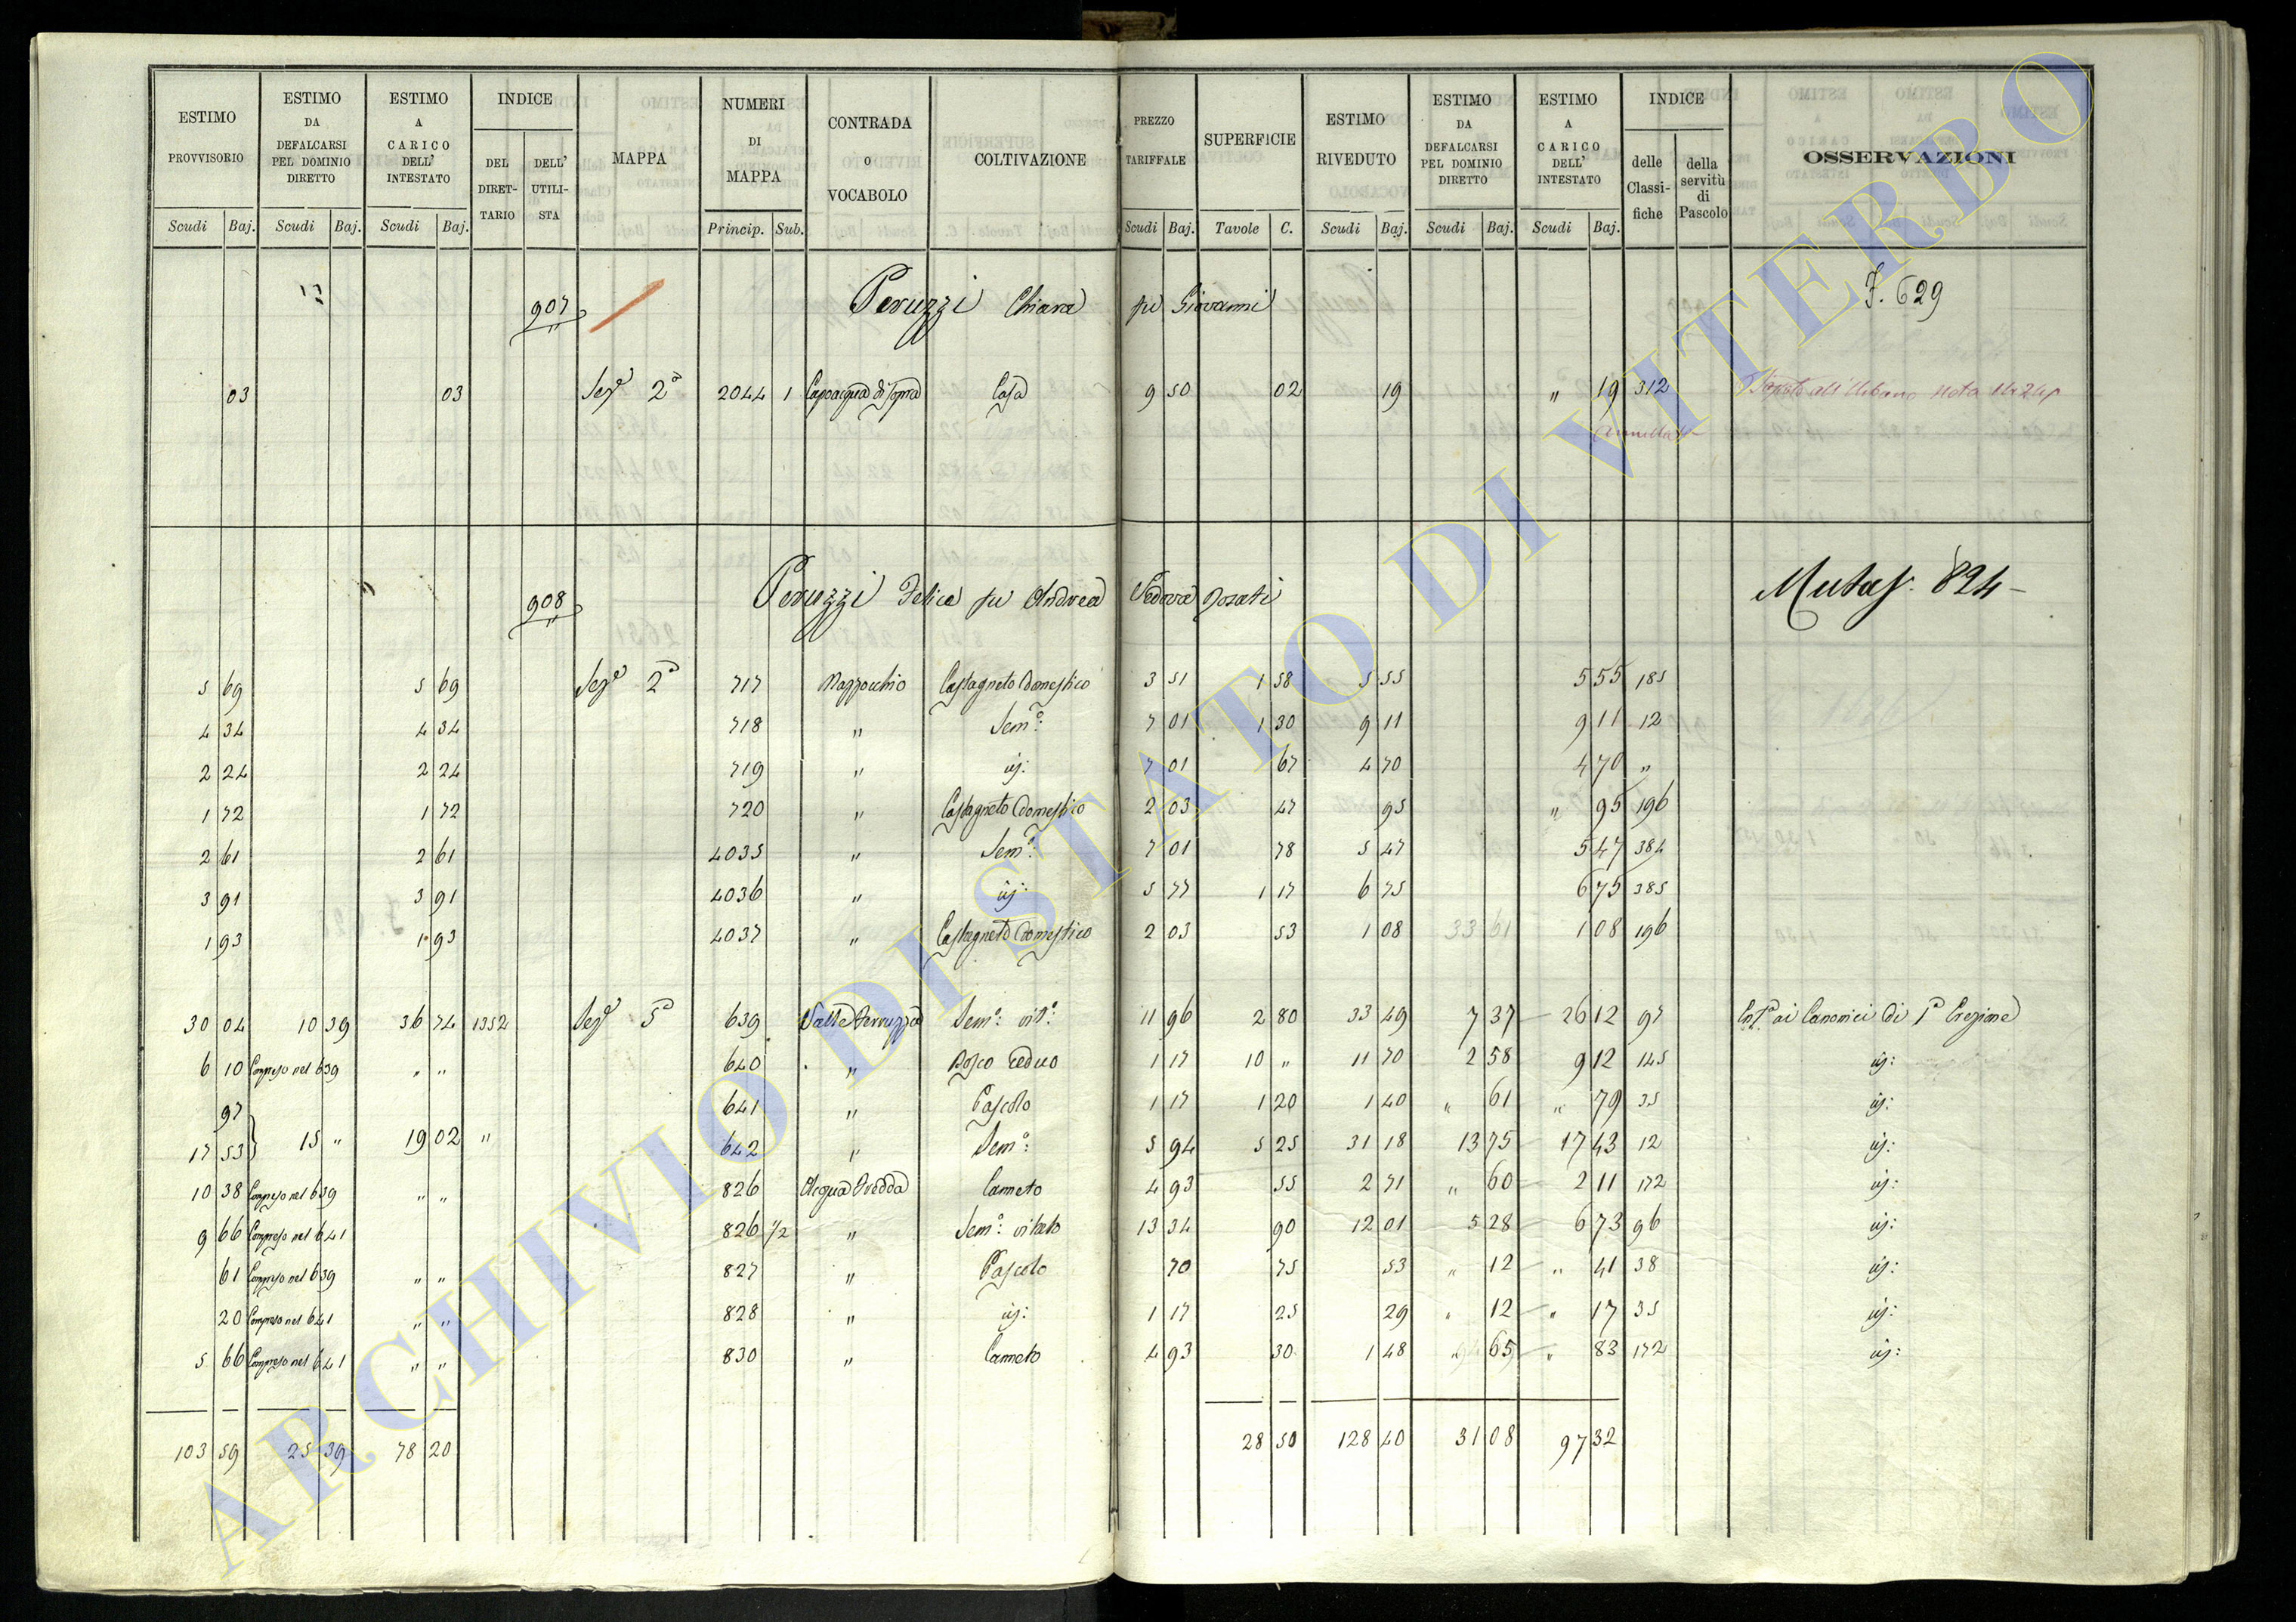 ESTIMO PROVVISORIO Scudi Baj. | ESTIMO DA DEFALCARSI PEL DOMINIO DIRETTO Scudi Baj. | ESTIMO A CARICO DELL' INTESTATO Scudi Baj. | INDICE DEL DIRET-TARIO | DELL' UTILI-STA | MAPPA | NUMERI DI MAPPA Princip. Sub. | CONTRADA O VOCABOLO | COLTIVAZIONE | PREZZO TARIFFALE Scudi Baj. | SUPERFICIE Tavole C. | ESTIMO RIVEDUTO Scudi Baj. | ESTIMO DA DEFALCARSI PEL DOMINIO DIRETTO Scudi Baj. | ESTIMO A CARICO DELL' INTESTATO Scudi Baj. | INDICE delle Classi-fiche | della servitù di Pascolo | OSSERVAZIONI
907 Peruzzi Chiara fu Giovanni F. 629
03 03 Sez.e 2a 2044 1 Capacqua di Sopra Casa 9 50 02 19 " 19 312 all'Urbano Nota
Annullata
908 Peruzzi Felice fu Andrea Vedova Rosati Mutaz. 824 -
5 69 5 69 Sez.e 2a 717 Mazzocchio Castagneto Domestico 3 51 1 58 5 55 5 55 185
4 34 4 34 718 " Sem.o: 7 01 1 30 9 11 9 11 12
2 24 2 24 719 " id: 7 01 67 4 70 4 70 "
1 72 1 72 720 " Castagneto Domestico 2 03 47 95 " 95 196
2 61 2 61 4035 " Sem.o: 7 01 78 5 47 5 47 384
3 91 3 91 4036 " id: 5 77 1 17 6 75 6 75 385
1 93 1 93 4037 " Castagneto Domestico 2 03 53 1 08 33 61 1 08 196
30 04 10 39 36 74 1352 Sez.e 5a 639 Valle Perruzza Sem.o: vit.o: 11 96 2 80 33 49 7 37 26 12 97 ai Canonici di
6 10 Compreso nel 639 " " 640 " Bosco Ceduo 1 17 10 " 11 70 2 58 9 12 145 id:
97 641 " Pascolo 1 17 1 20 1 40 " 61 " 79 35 id:
17 53 15 " 19 02 " 642 " Sem.o: 5 94 5 25 31 18 13 75 17 43 12 id:
10 38 Compreso nel 639 " " 826 Acqua Fredda Canneto 4 93 55 2 71 " 60 2 11 172 id:
9 66 Compreso nel 641 826 1/2 " Sem.o: vitato 13 34 90 12 01 5 28 6 73 96 id:
61 Compreso nel 639 " " 827 " Pascolo 70 75 53 " 12 " 41 38 id:
20 Compreso nel 641 " " 828 " id: 1 17 25 29 " 12 " 17 35 id:
5 66 Compreso nel 641 " " 830 " Canneto 4 93 30 1 48 " 65 " 83 172 id:
103 59 25 39 78 20 28 50 128 40 31 08 97 32
ARCHIVIO DI STATO DI VITERBO